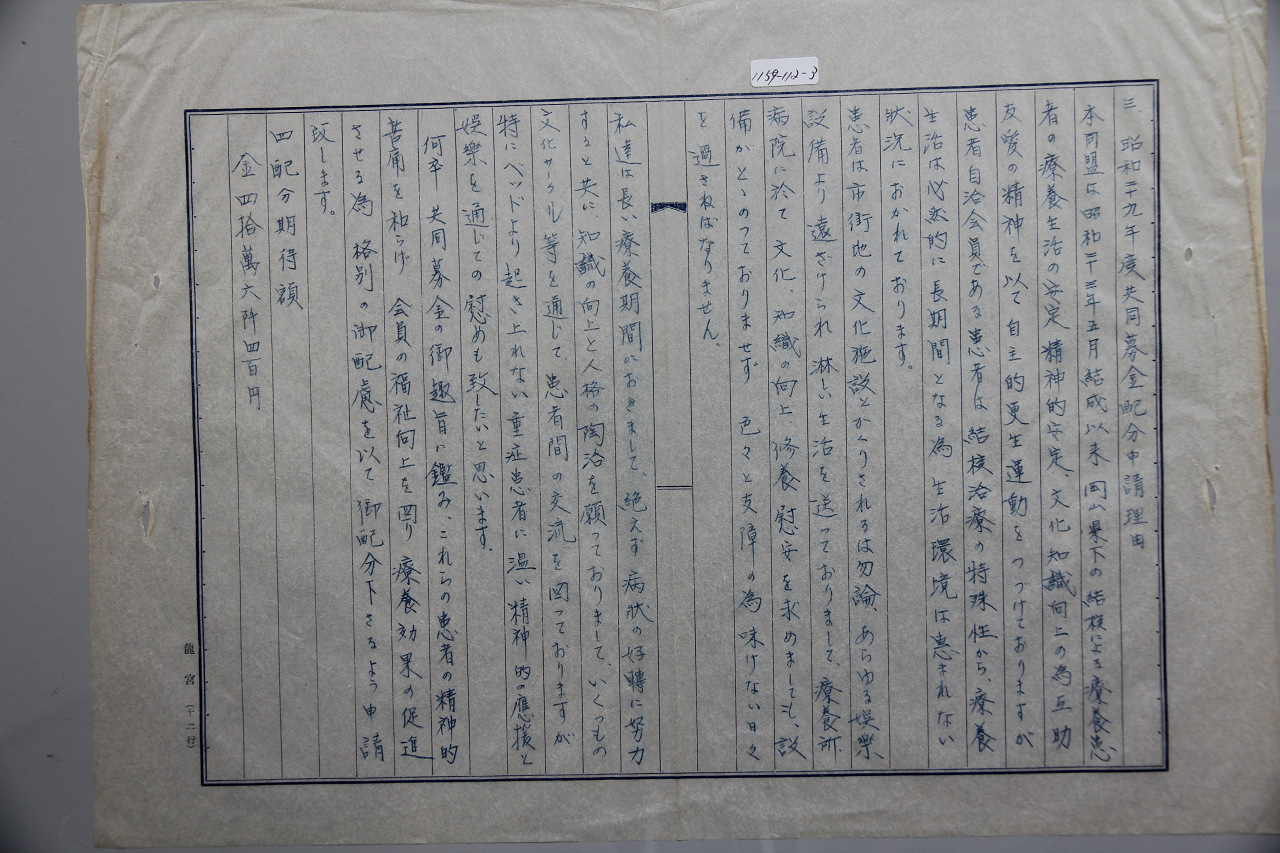 1159-112-3
三、昭和二十九年度共同募金配分申請理由
本同盟は昭和二十三年五月結成以来 岡山県下の結核による療養患
者の療養生活の安定 精神的安定、文化知識向上の為互助
友愛の精神を以て自主的更生運動をつづけておりますが
患者自治会員である患者は結核治療の特殊性から、療養
生活は必然的に長期間となる為 生活環境は恵まれない
状況におかれております。
患者は市街地の文化施設とかくりされるは勿論、あらゆる娯樂
設備より遠ざけられ 淋しい生活を送っておりまして、療養所
病院に於て 文化、知識の向上、修養 慰安を求めましても、設
備がとゝのつておりませず 色々と支障の為 味けない日々
を過さねばなりません。
私達は長い療養期間におきまして、絶えず 病狀の好轉に努力
すると共に、知識の向上と人格の陶冶を願っておりまして、いくつもの
文化サークル等を通じて、患者間の交流を図っておりますが
特にベッドより起き上れない重症患者に温い精神的の應援と
娯樂を通じての慰めも致したいと思います。
何卒 共同募金の御趣旨に鑑み、これらの患者の精神的
苦痛を和らげ 会員の福祉向上を図り 療養効果の促進
させる為 格別の御配慮を以て 御配分下さるよう申請
致します。
四 配分期待額
金四拾萬六阡四百円
龍宮（十二行）